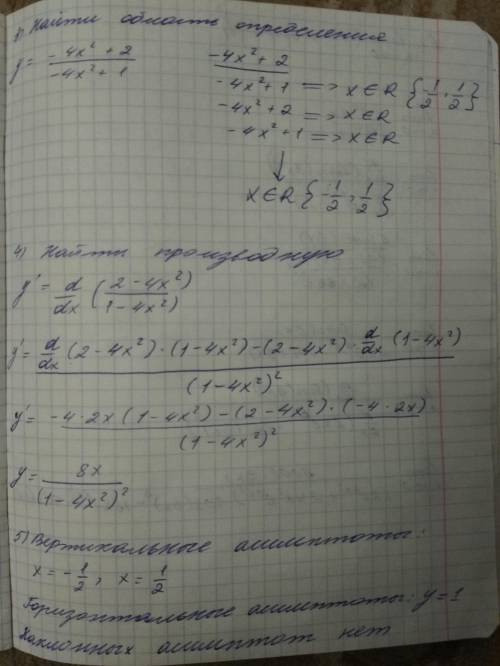 3) Найти область определения
y = (-4x² + 2)/(-4x² + 1)
(-4x² + 2)/(-4x² + 1) => x∈R {-1/2, 1/2}
-4x² + 2 => x∈R
-4x² + 1 => x∈R
↓
x∈R {-1/2, 1/2}
4) Найти производную
y' = d/dx ((2 - 4x²)/(1 - 4x²))
y' = (d/dx (2 - 4x²) · (1 - 4x²) - (2 - 4x²) · d/dx (1 - 4x²))/(1 - 4x²)²
y' = (-4 · 2x (1 - 4x²) - (2 - 4x²) · (-4 · 2x))/(1 - 4x²)²
y = 8x/(1 - 4x²)²
5) Вертикальные асимптоты:
x = -1/2, x = 1/2
Горизонтальные асимптоты: y = 1
Наклонных асимптот нет